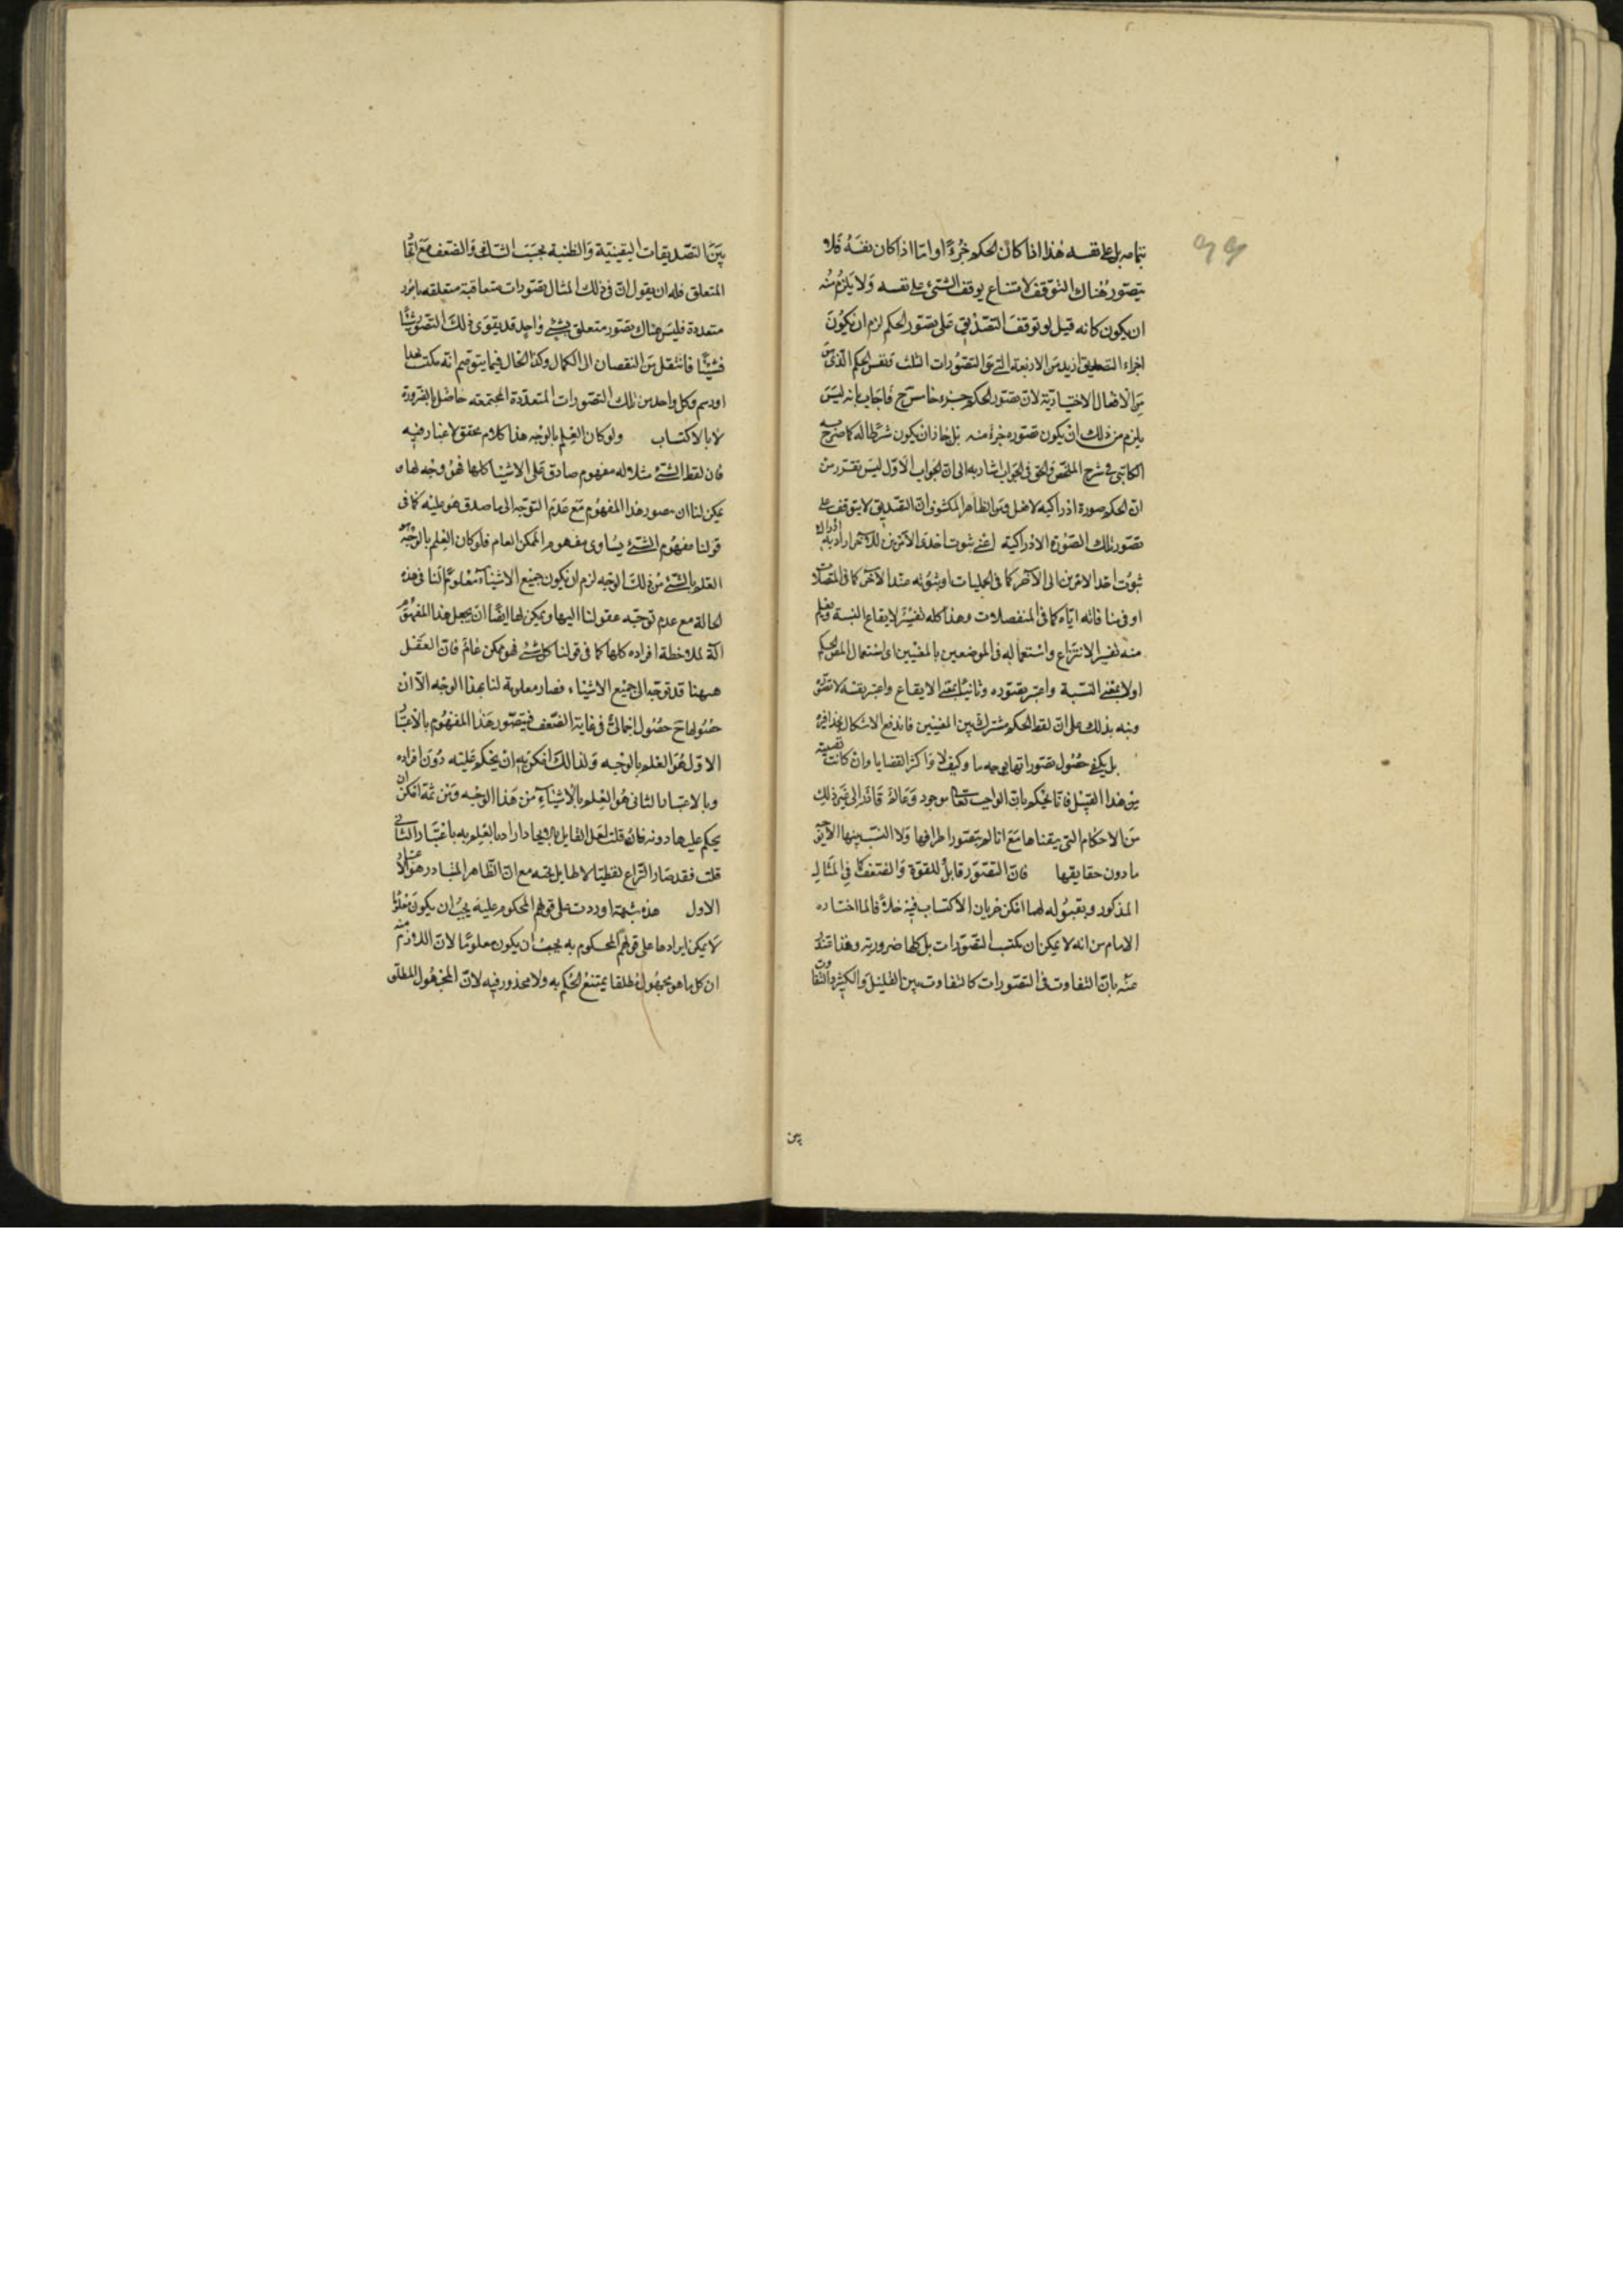 بتمامه بل على نفسه هذا اذا كان الحكم جزءا واما اذا كان نفسه فلا
يتصور هناك التوقف لامتناع توقف الشئ على نفسه ولا يلزم منه
ان يكون كانه قيل لو توقف التصديق على تصور الحكم لزم ان يكون
اجزاء التصديق ازيد من الاربعة التى هى التصورات الثلث ونفس الحكم الذى هو
من الافعال الاختيارية لان تصور الحكم جزء خامس ح فاجاب بانه ليس
يلزم من ذلك ان يكون تصوره جزء منه بل جاز ان يكون شرطا له كما صرح به
الكاتبى فى شرح الملخص والحق فى الجواب اشار به الى ان الجواب الاول ليس بتقدير من
ان الحكم صورة ادراكية لا فعل ومن الظاهر المكشوف ان التصديق لا يتوقف على
تصور تلك الصورة الادراكية اعنى ثبوت احد الامرين للاخر اراد به ادراك
ثبوت احد الامرين الى الآخر كما فى الحمليات او ثبوته عند الآخر كما فى المتصلات
او منافاته اياه كما فى المنفصلات وهذا كله تفسير لايقاع النسبة ويعلم
منه تفسير الانتزاع واستعماله فى الموضعين بالمعنيين اى استعمال المص الحكم
اولا بمعنى النسبة واعتبر تصوره وثانيا بمعنى الايقاع واعتبر نفسه لا تصوره
ونبه بذلك على ان لفظ الحكم مشترك بين المعنيين فاندفع الاشكال بحذافيره
بل يكفى حصول تصوراتها بوجه ما وكيف لا واكثر القضايا وان كانت نفسية
من هذا القبيل فانا نحكم بان الواجب تعالى موجود وعالم قادر الى غير ذلك
من الاحكام التى تيقناها مع انا لم نتصور اطرافها ولا النسب بينها الا بوجه
ما دون حقايقها فان التصور قابل للقوة والضعف كما فى المثال
المذكور وبقبوله لهما امكن جريان الاكتساب فيه خلافا لما اختاره
الامام من انه لا يمكن ان يكتسب التصورات بل كلها ضرورية وهذا
منه بان التفاوت فى التصورات كالتفاوت بين القليل والكثير والتفاوت
بين
بين التصديقات اليقينية والظنية بحسب الشدة والضعف مع اتحاد
المتعلق فله ان يقول ان فى ذلك المثال تصورات متعاقبة متعلقة بامور
متعددة فليس هناك تصور متعلق بشئ واحد قد يتقوى ذلك التصور شيئا
فشيئا فانتقل من النقصان الى الكمال وكذا الحال فيما يتوهم انه مكتسب بحد
او رسم وكل واحد من تلك التصورات المتعددة المجتمعة حاصل بالضرورة
لا بالاكتساب ولو كان العلم بالوجه هذا كلام محقق لا غبار فيه
فان لفظ الشئ مثلا له مفهوم صادق على الاشياء كلها فهو وجه لها و
يمكن لنا ان نتصور هذا المفهوم مع عدم التوجه الى ما صدق هو عليه كما فى
قولنا مفهوم الشئ يساوى مفهوم الممكن العام فلو كان العلم بالوجه هو
العلم بالشئ من ذلك الوجه لزم ان يكون جميع الاشياء معلومة لنا فى هذه
الحالة مع عدم توجه عقولنا اليها ويمكن لها ايضا ان يجعل هذا المفهوم
آلة لملاحظة افراده كلها كما فى قولنا كل شئ فهو ممكن عام فان العقل
ههنا قد توجه الى جميع الاشياء فصار معلومة لنا بهذا الوجه الا ان
حصولها ح حصول اجمالى فى غاية الضعف فتصور هذا المفهوم بالاعتبار
الاول هو العلم بالوجه ولذالك امكن به ان يحكم عليه دون افراده
وبالاعتبار الثانى هو العلم بالاشياء من هذا الوجه ومن ثمة امكن ان
يحكم عليها دونه فان قلت لعل القايل بالاتحاد اراد بالعلم به باعتبار الثانى
قلت فقد صار النزاع لفظيا لا طايل تحته مع ان الظاهر المتبادر هو الاعتبار
الاول هذه شبهة اوردت على قولهم المحكوم عليه يجب ان يكون معلوما
لا يمكن ايرادها على قولهم المحكوم به يجب ان يكون معلوما لان اللازم منه
ان كل ما هو مجهول مطلقا يمتنع الحكم به ولا محذور فيه لان المجهول المطلق